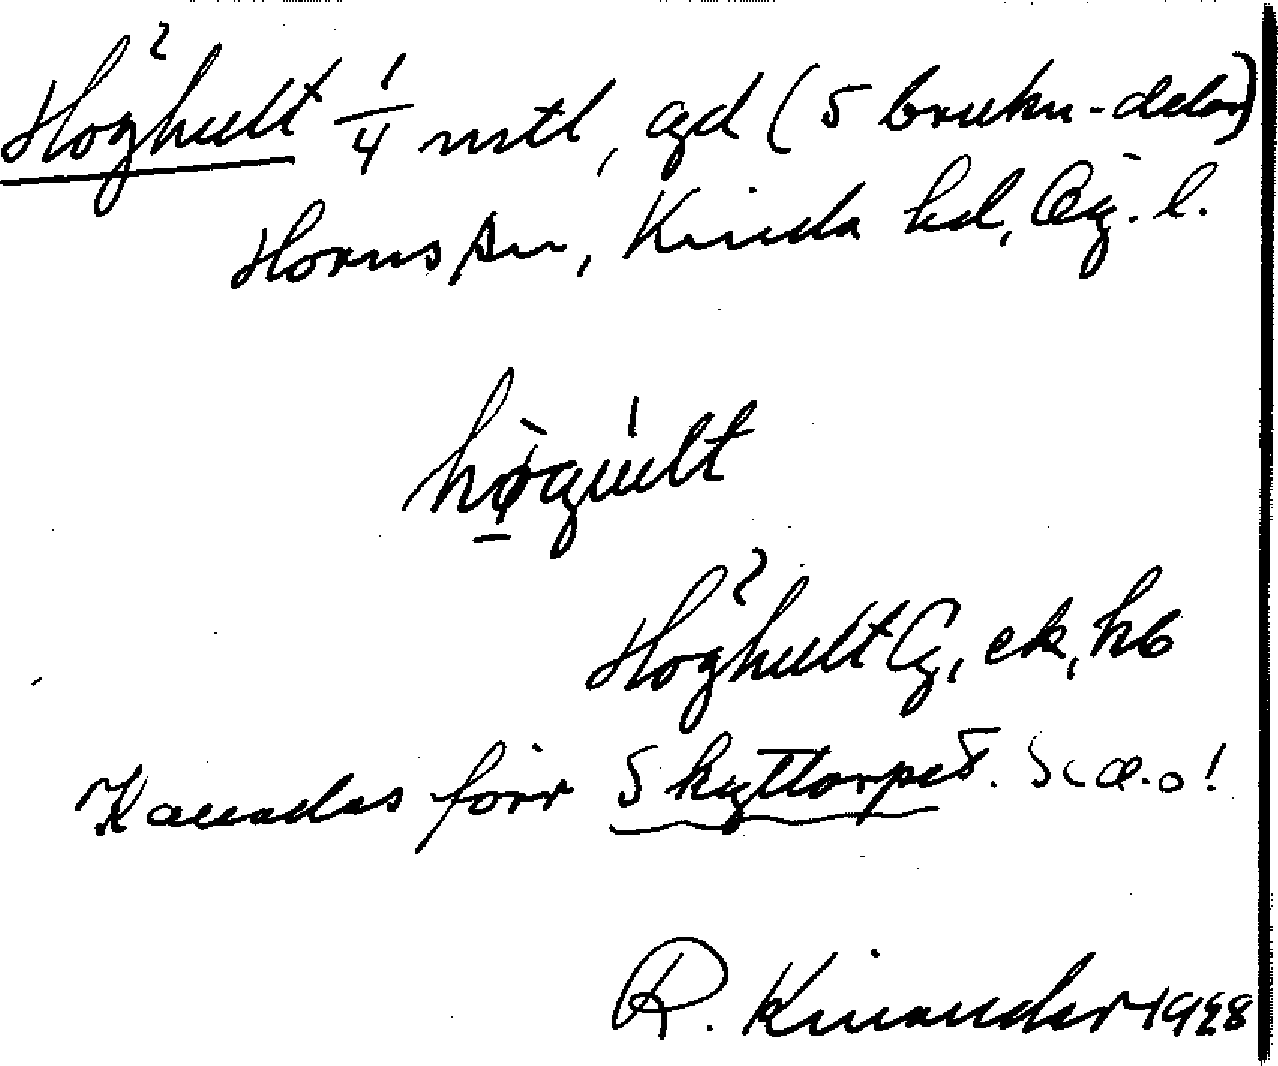 Höghult 1/4 mtl, gd (5 brukn-delar)
Horns sn, Kinda hd, Ög. l.
Höghult G, ek, hb
Kallades förr Skyttorpet. S. d. o!
R. Kinander 1928